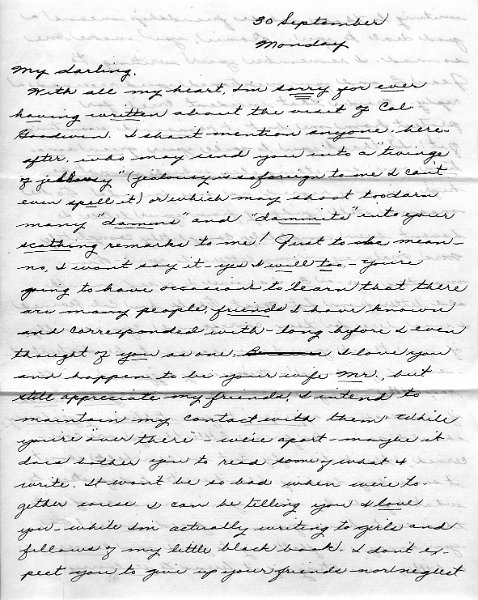 30 September
Monday
My darling,
With all my heart, I'm sorry for ever
having written about the visit of Cal
Goodwin. I shant mention anyone, here-
after, who may send you into a twinge
of jealousy" (jealousy is so foreign to me I can't
even spell it) or which may shoot too darn
many "damns" and "dammits" into your
scathing remarks to me! Just to be mean—
no, I won't say it - yes I will too - You're
going to have occasion to learn that there
are many people, friends I have known
and corresponded with - long before I even
thought of you as one. I love you
and happen to be your wife Mr., but
still appreciate my friends. I intend to
maintain my contact with them. While
you're "over there" - we're apart - maybe it
does bother you to read some of what I
write. It won't be so bad when we're to-
gether cause I can be telling you I love
you - while I'm actually writing to girls and
fellows of my little black book. I don't ex-
pect you to give up your friends nor neglect